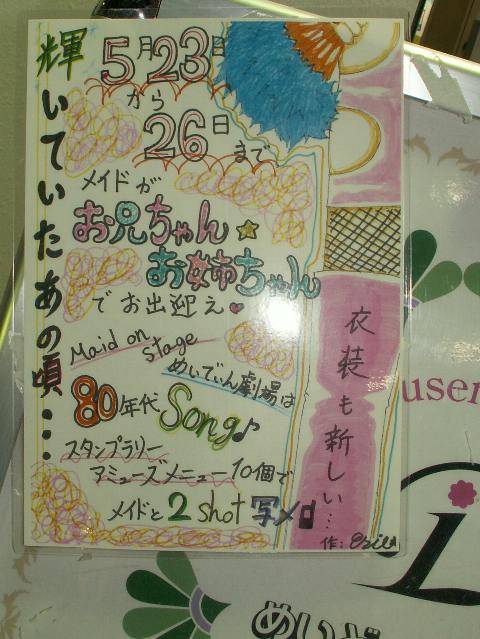 輝いていたあの頃…
5月23日
から
26日まで
メイドが
お兄ちゃん☆
お姉ちゃん
でお出迎え♥
Maid on stage
めいでぃん劇場は
80年代 Song♪
スタンプラリー
アミューズメニュー10個で
メイドと2shot写メ
衣装も新しい…
作:
user